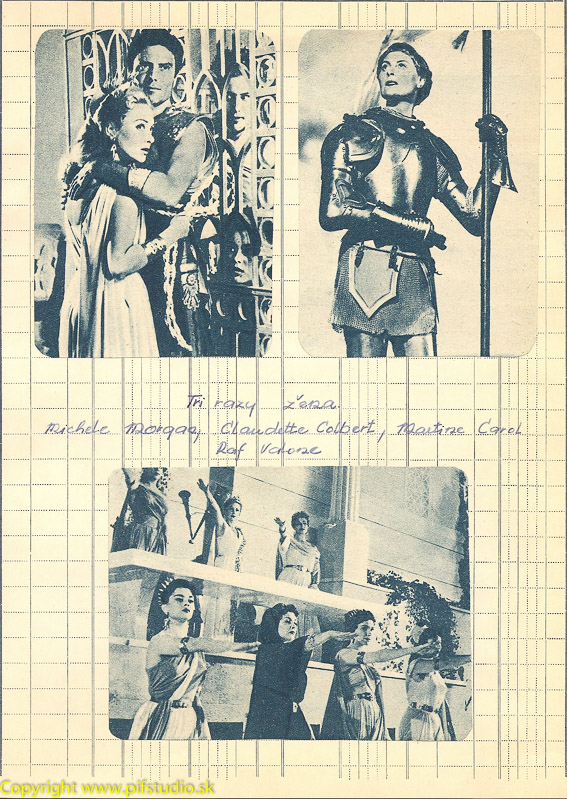 Tri razy žena.
Michele Morgan, Claudette Colbert, Martine Carol
Raf Valone
Copyright www.pifstudio.sk